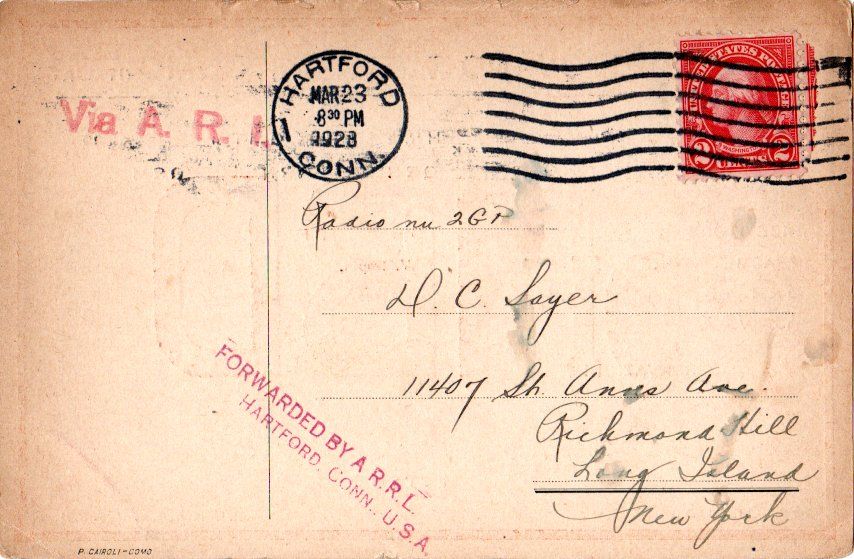 Via A. R.
HARTFORD
1
MAR 23
8 30 PM
1928
CONN.
UNITED STATES POSTAGE
WASHINGTON
2 CENTS 2
Radio nu 2GP
D. C. Sayer
11407 St. Anns Ave.
Richmond Hill
Long Island
New York
FORWARDED BY A.R.R.L.
HARTFORD, CONN., U.S.A.
P. CAIROLI-COMO